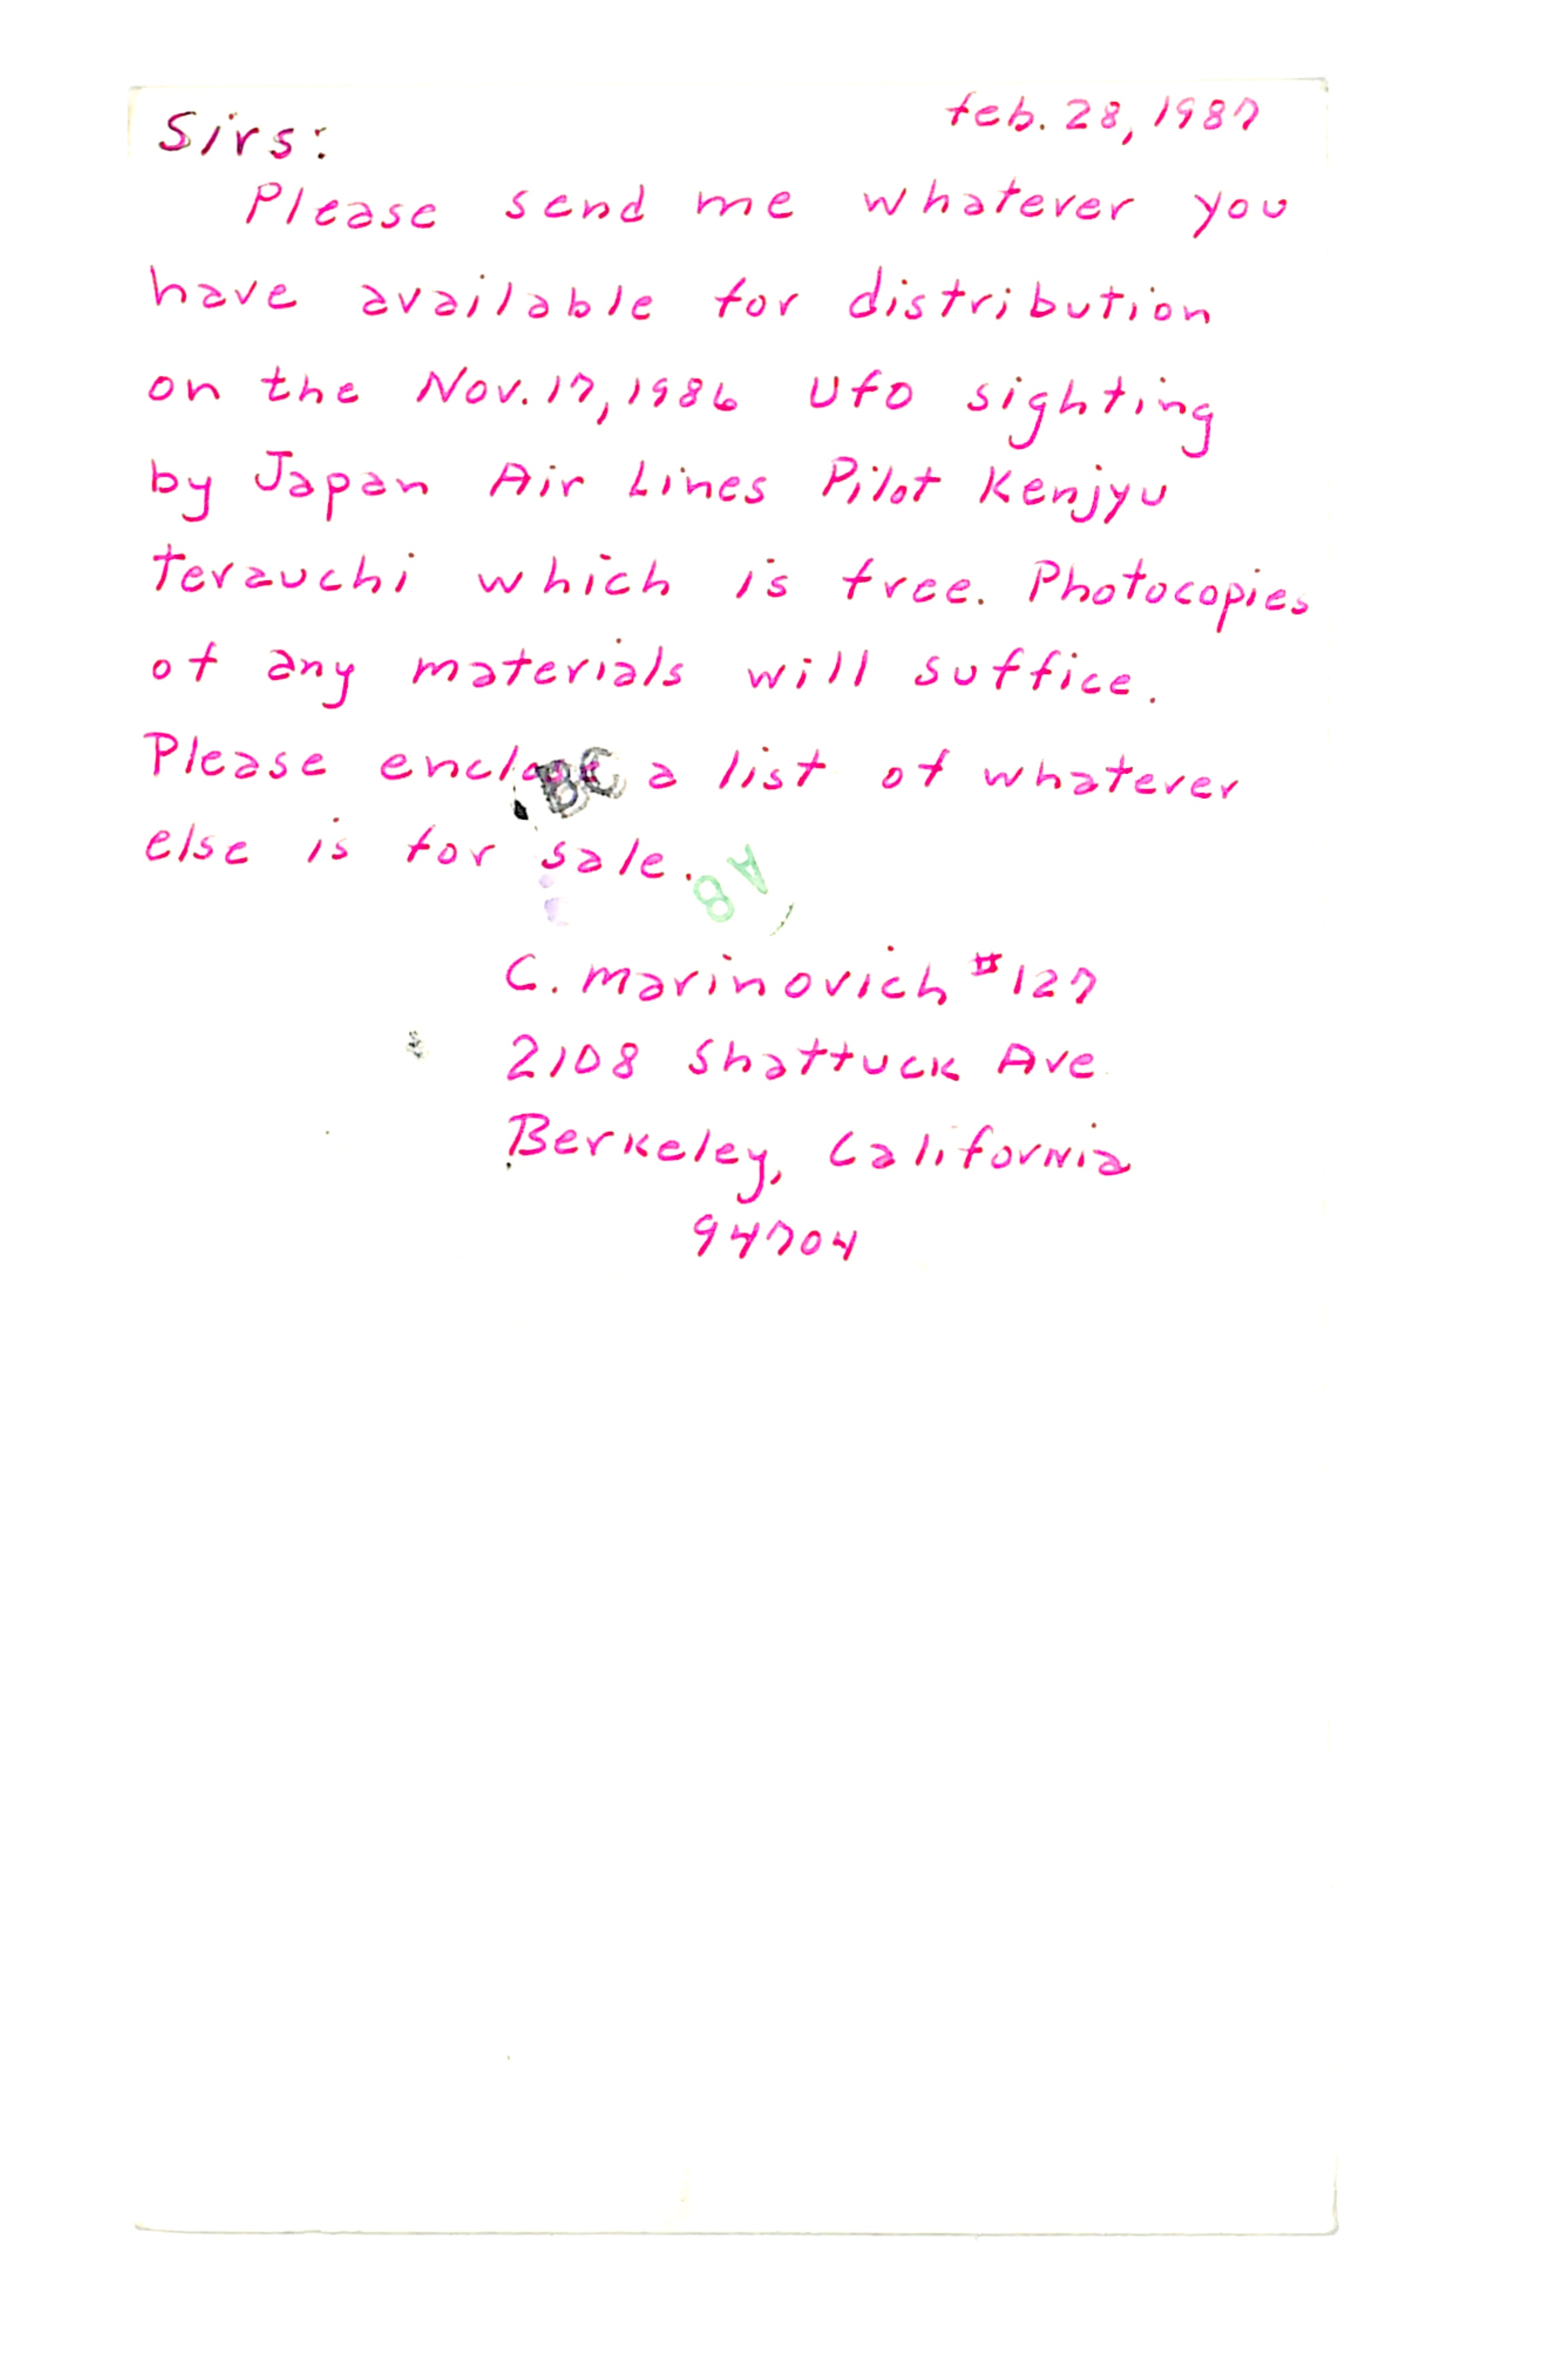 feb. 28, 1987
Sirs:
Please send me whatever you
have available for distribution
on the Nov. 17, 1986 UfO sighting
by Japan Air Lines Pilot Kenjyu
Terauchi which is free. Photocopies
of any materials will suffice.
Please enclose a list of whatever
BC
else is for sale.
A8
C. Marinovich #127
2108 Shattuck Ave
Berkeley, California
94704